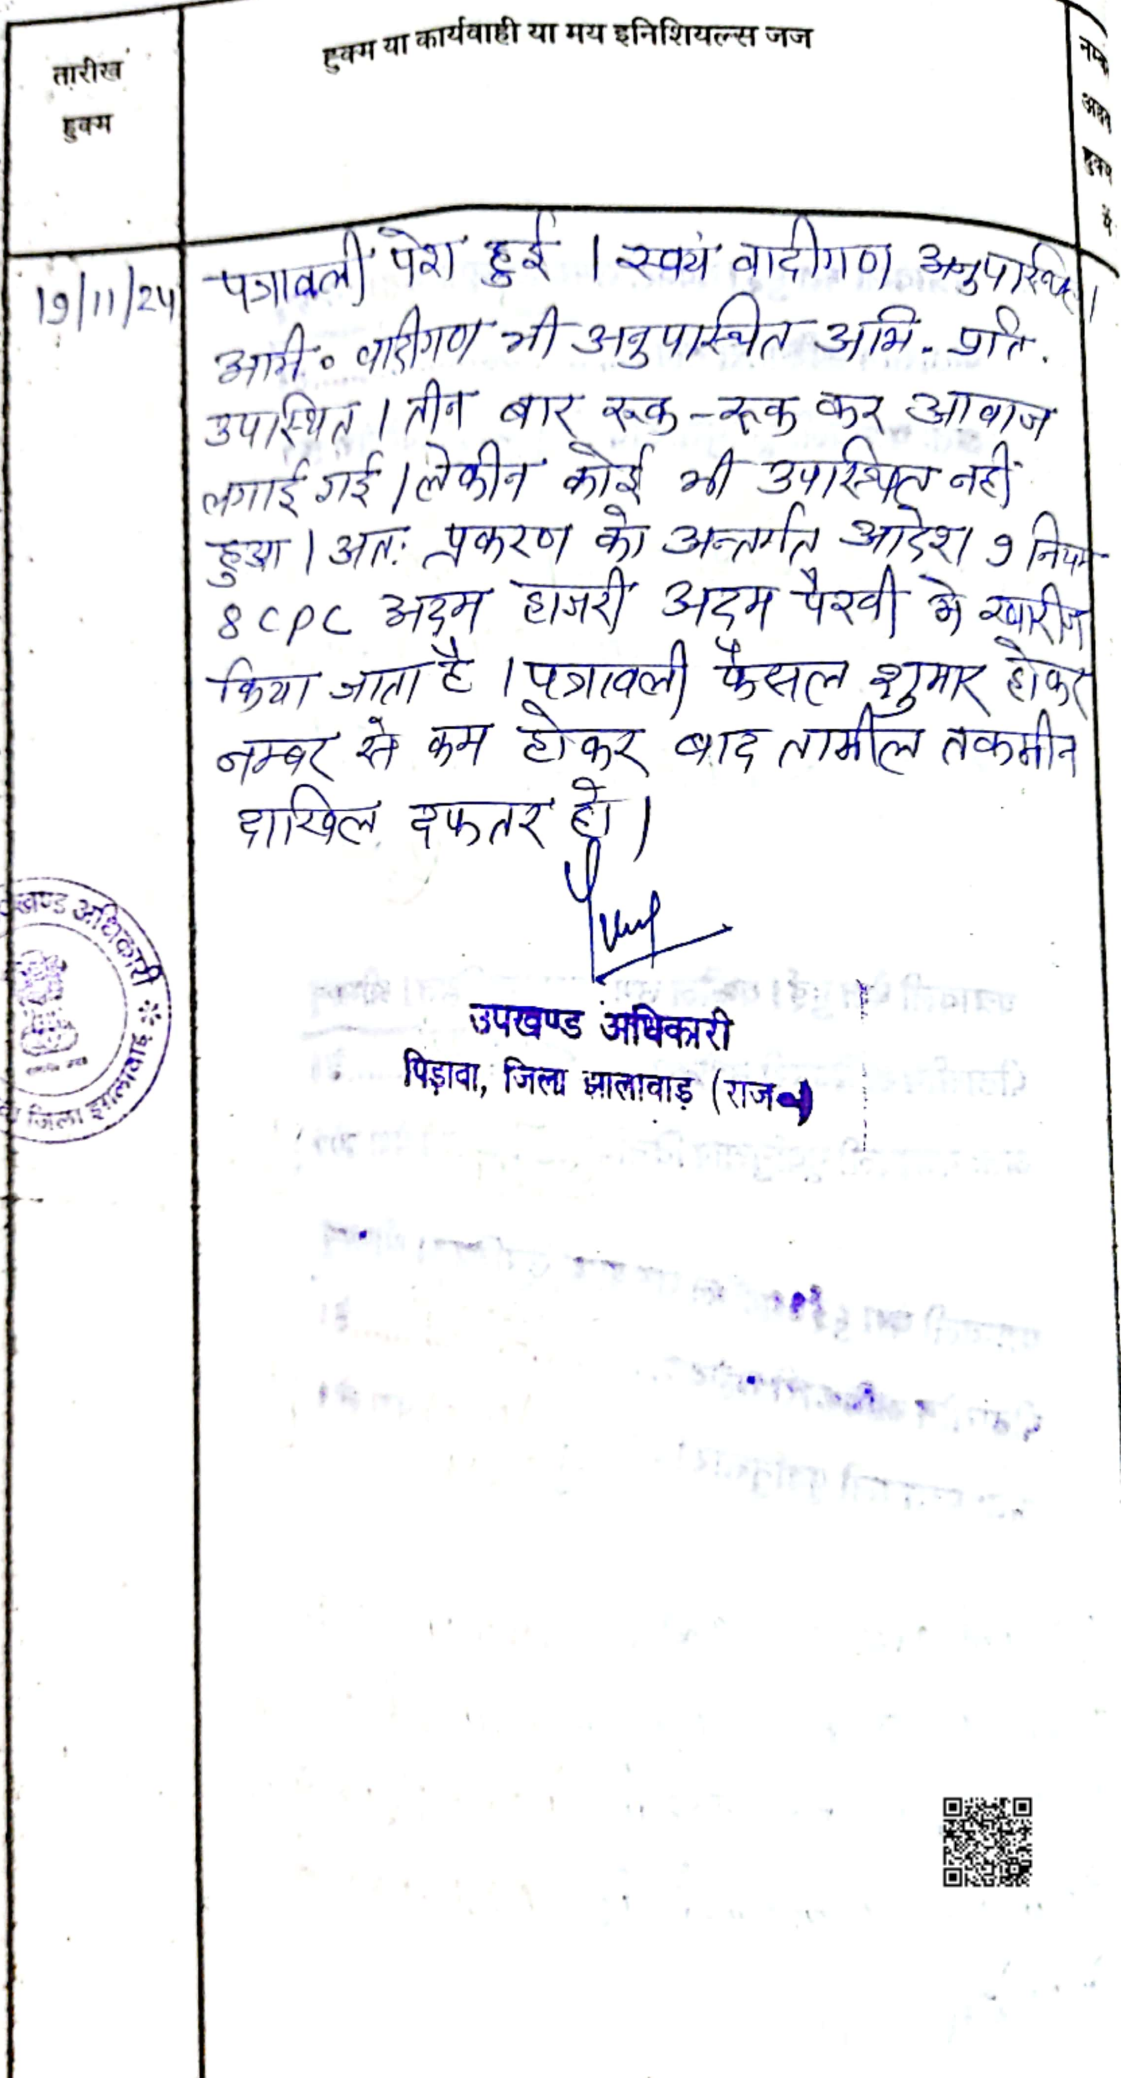 तारीख
हुक्म
हुक्म या कार्यवाही या मय इनिशियल्स जज
हुक्म
में
19/11/24
पत्रावली पेश हुई । स्वयं वादीगण अनुपस्थित ।
अभि० वादीगण भी अनुपास्थित अभि. प्रति.
उपास्थित । तीन बार रूक-रूक कर आवाज
लगाई गई । लेकीन कोई भी उपस्थित नहीं
हुआ । अतः प्रकरण को अन्तर्गत आदेश 9 नियम
8 CPC अदम हाजरी अदम पैरवी मे खारीज
किया जाता है । पत्रावली फैसल शुमार होकर
नम्बर से कम होकर बाद तामील तकमील
दाखिल दफतर हो ।
उपखण्ड अधिकारी
पिड़ावा, जिला झालावाड़ (राज०)
खण्ड अधिकारी
जिला झालावाड़